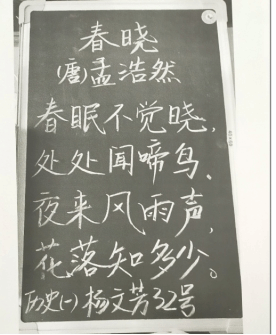 春晓
(唐)孟浩然
春眠不觉晓,
处处闻啼鸟、
夜来风雨声,
花落知多少。
历史(一) 杨文芳32号